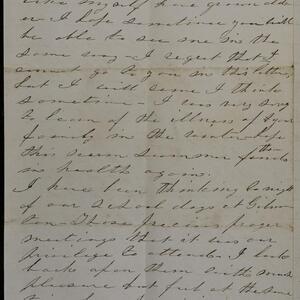 like myself have grown old
er I hope sometime you will
be able to see me in the
same way I regret that I
cannot go to you in this letter,
but I will come I think
sometime I was very sorry
to learn of the illness of your
family in the winter hope
this warm summer finds them
in health again.
I have been thinking tonight
of our school days at
ton Those precious prayer
meetings that it was our
privilege to attend. I look
back upon them with much
pleasure but feel at the same